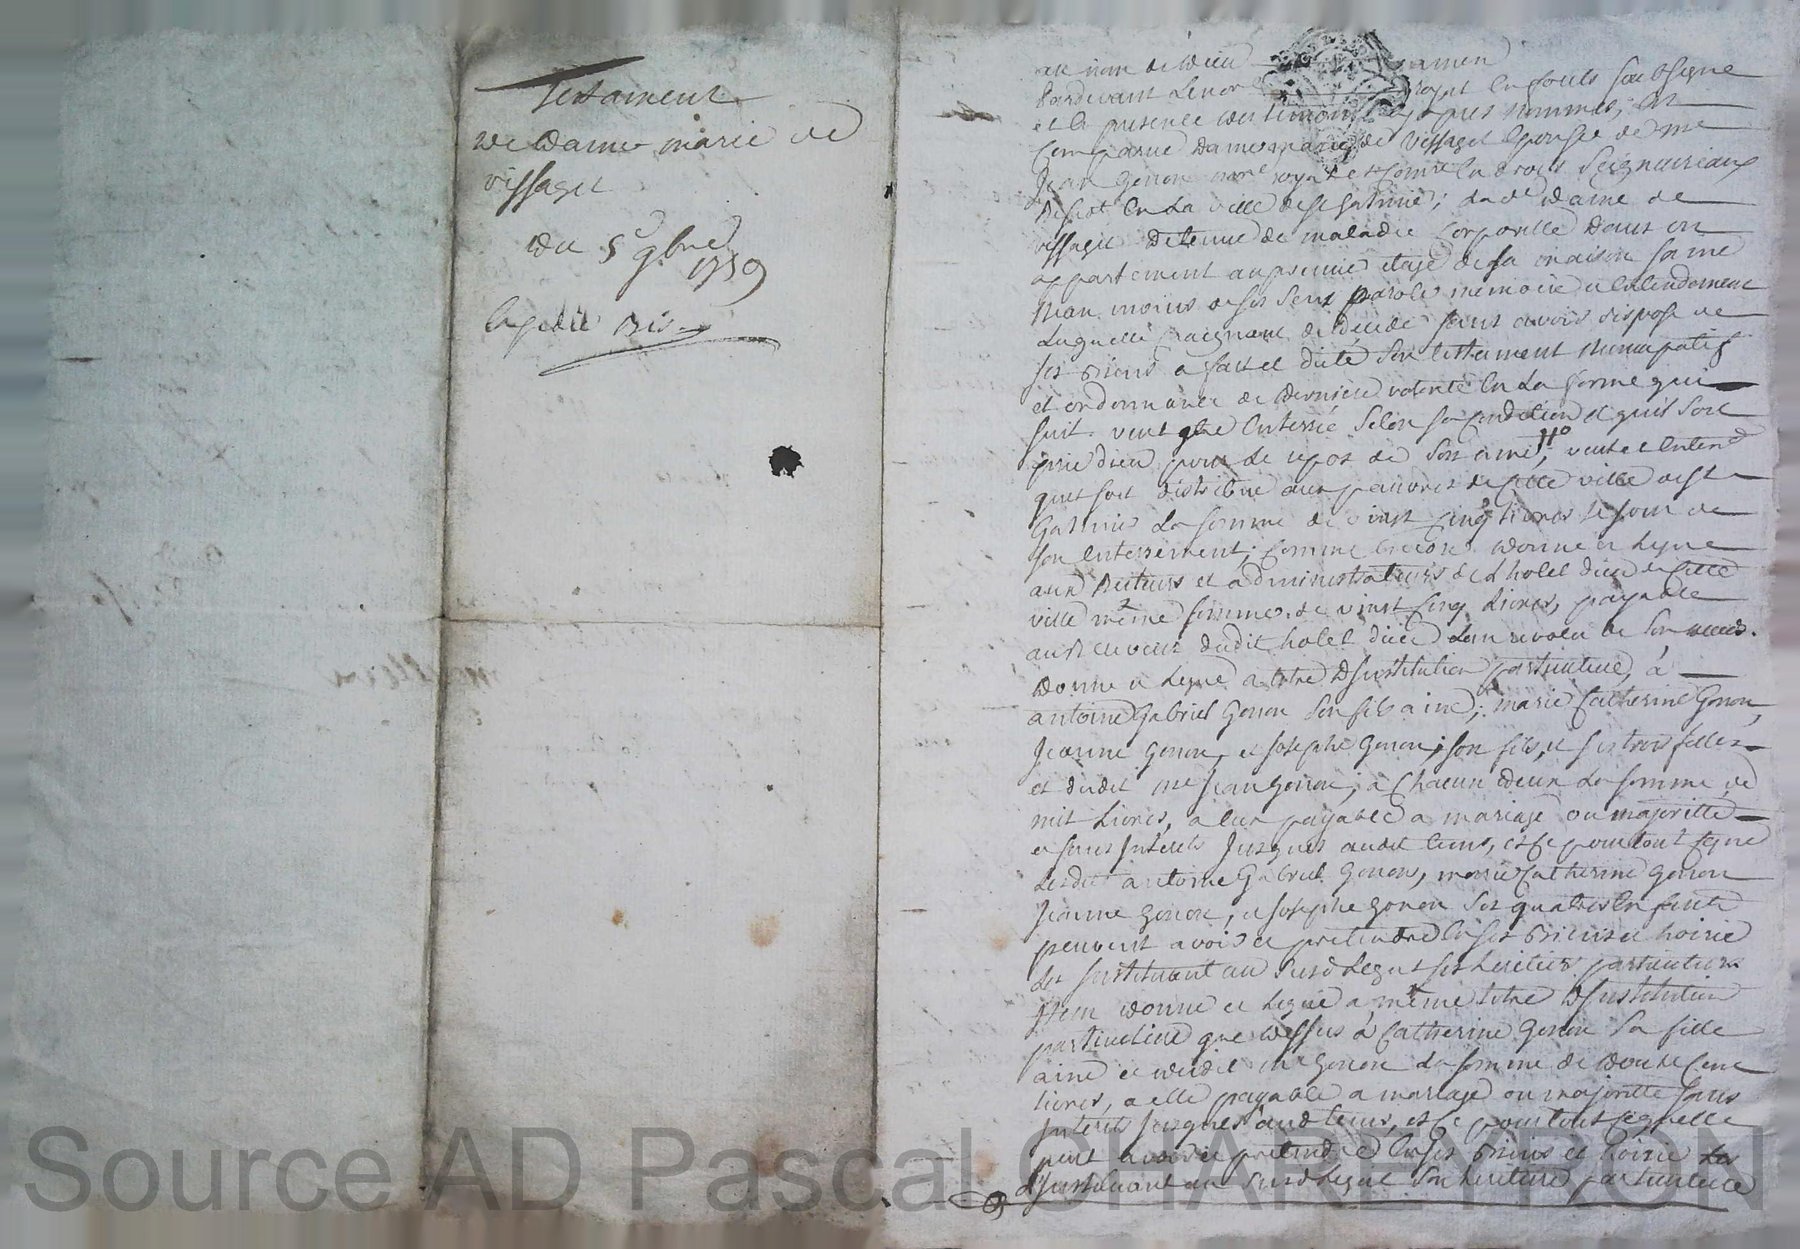 Testament
de dame marie de
vissaguet
du 5e 9bre
1759
Expedié bis
au nom de dieu amen
Pardevant Le no.re royal en fouts soubsigné
et en presence des temoins cy apres nommés, est
Comparue dame marie de Vissaguet Epouse de me
Jean Gonon nore royal et Comre en droits Seigneuriaux
Residt en La ville de st galmier; Lade dame de
vissaguet detenue de maladie Corporelle dans un
appartement au premier etage de sa maison saine
Neanmoins de ses sens parole memoire et entendement
Laquelle craignant de deceder sans avoir disposé de
ses biens a fait et dicté son testament nuncupatif
et ordonnance de derniere volonté en La forme qui
suit. veut etre enterrée selon sa condition et quil soit
prié dieu pour le repos de son ame, #o veut et entend
quil soit distribué aux pauvres de cette ville de st
Galmier La somme de vint cinq livres le jour de
son enterrement; comme encore donne et legue
aux Recteurs et administrateurs de L'hotel dieu de cette
ville même somme de vint cinq Livres, payable
au Receveur dudit hotel dieu Lan revolu de son deces.
donne et Legue a titre D'institution particuliere, à
antoine Gabriel Gonon son fils ainé; marie Catherine Gonon,
Jeanne Gonon, et Josephe Gonon; son fils, et ses trois filles
et dudit me Jean Gonon, a Chacun deux La somme de
mil Livres, a eux payable a mariage ou majorité
et sans Interets Jusques audit tems, et ce pour tout ce que
Lesdits antoine Gabriel Gonon, marie Catherine Gonon
Jeanne Gonon, et Josephe Gonon ses quatres Enfants
peuvent avoir et pretendre en ses biens et hoirie
Les Instituant au susd. Legat ses heritiers particuliers
Item donne et Legue a même titre D'institution
particuliere que dessus à Catherine Gonon sa fille
ainée et dudit me Gonon La somme de douze Cent
livres, a elle payable a mariage ou majorité sans
Interets Jusques aud. tems, et ce pour tout ce quelle
peut avoir et pretendre en ses biens et hoirie
L'Instituant au susd. Legat son heritiere particuliere
Source AD Pascal CHAREYRON